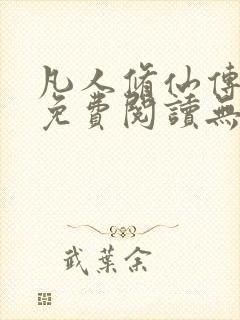 凡人脩仙傳
免費閱讀無
武葉余